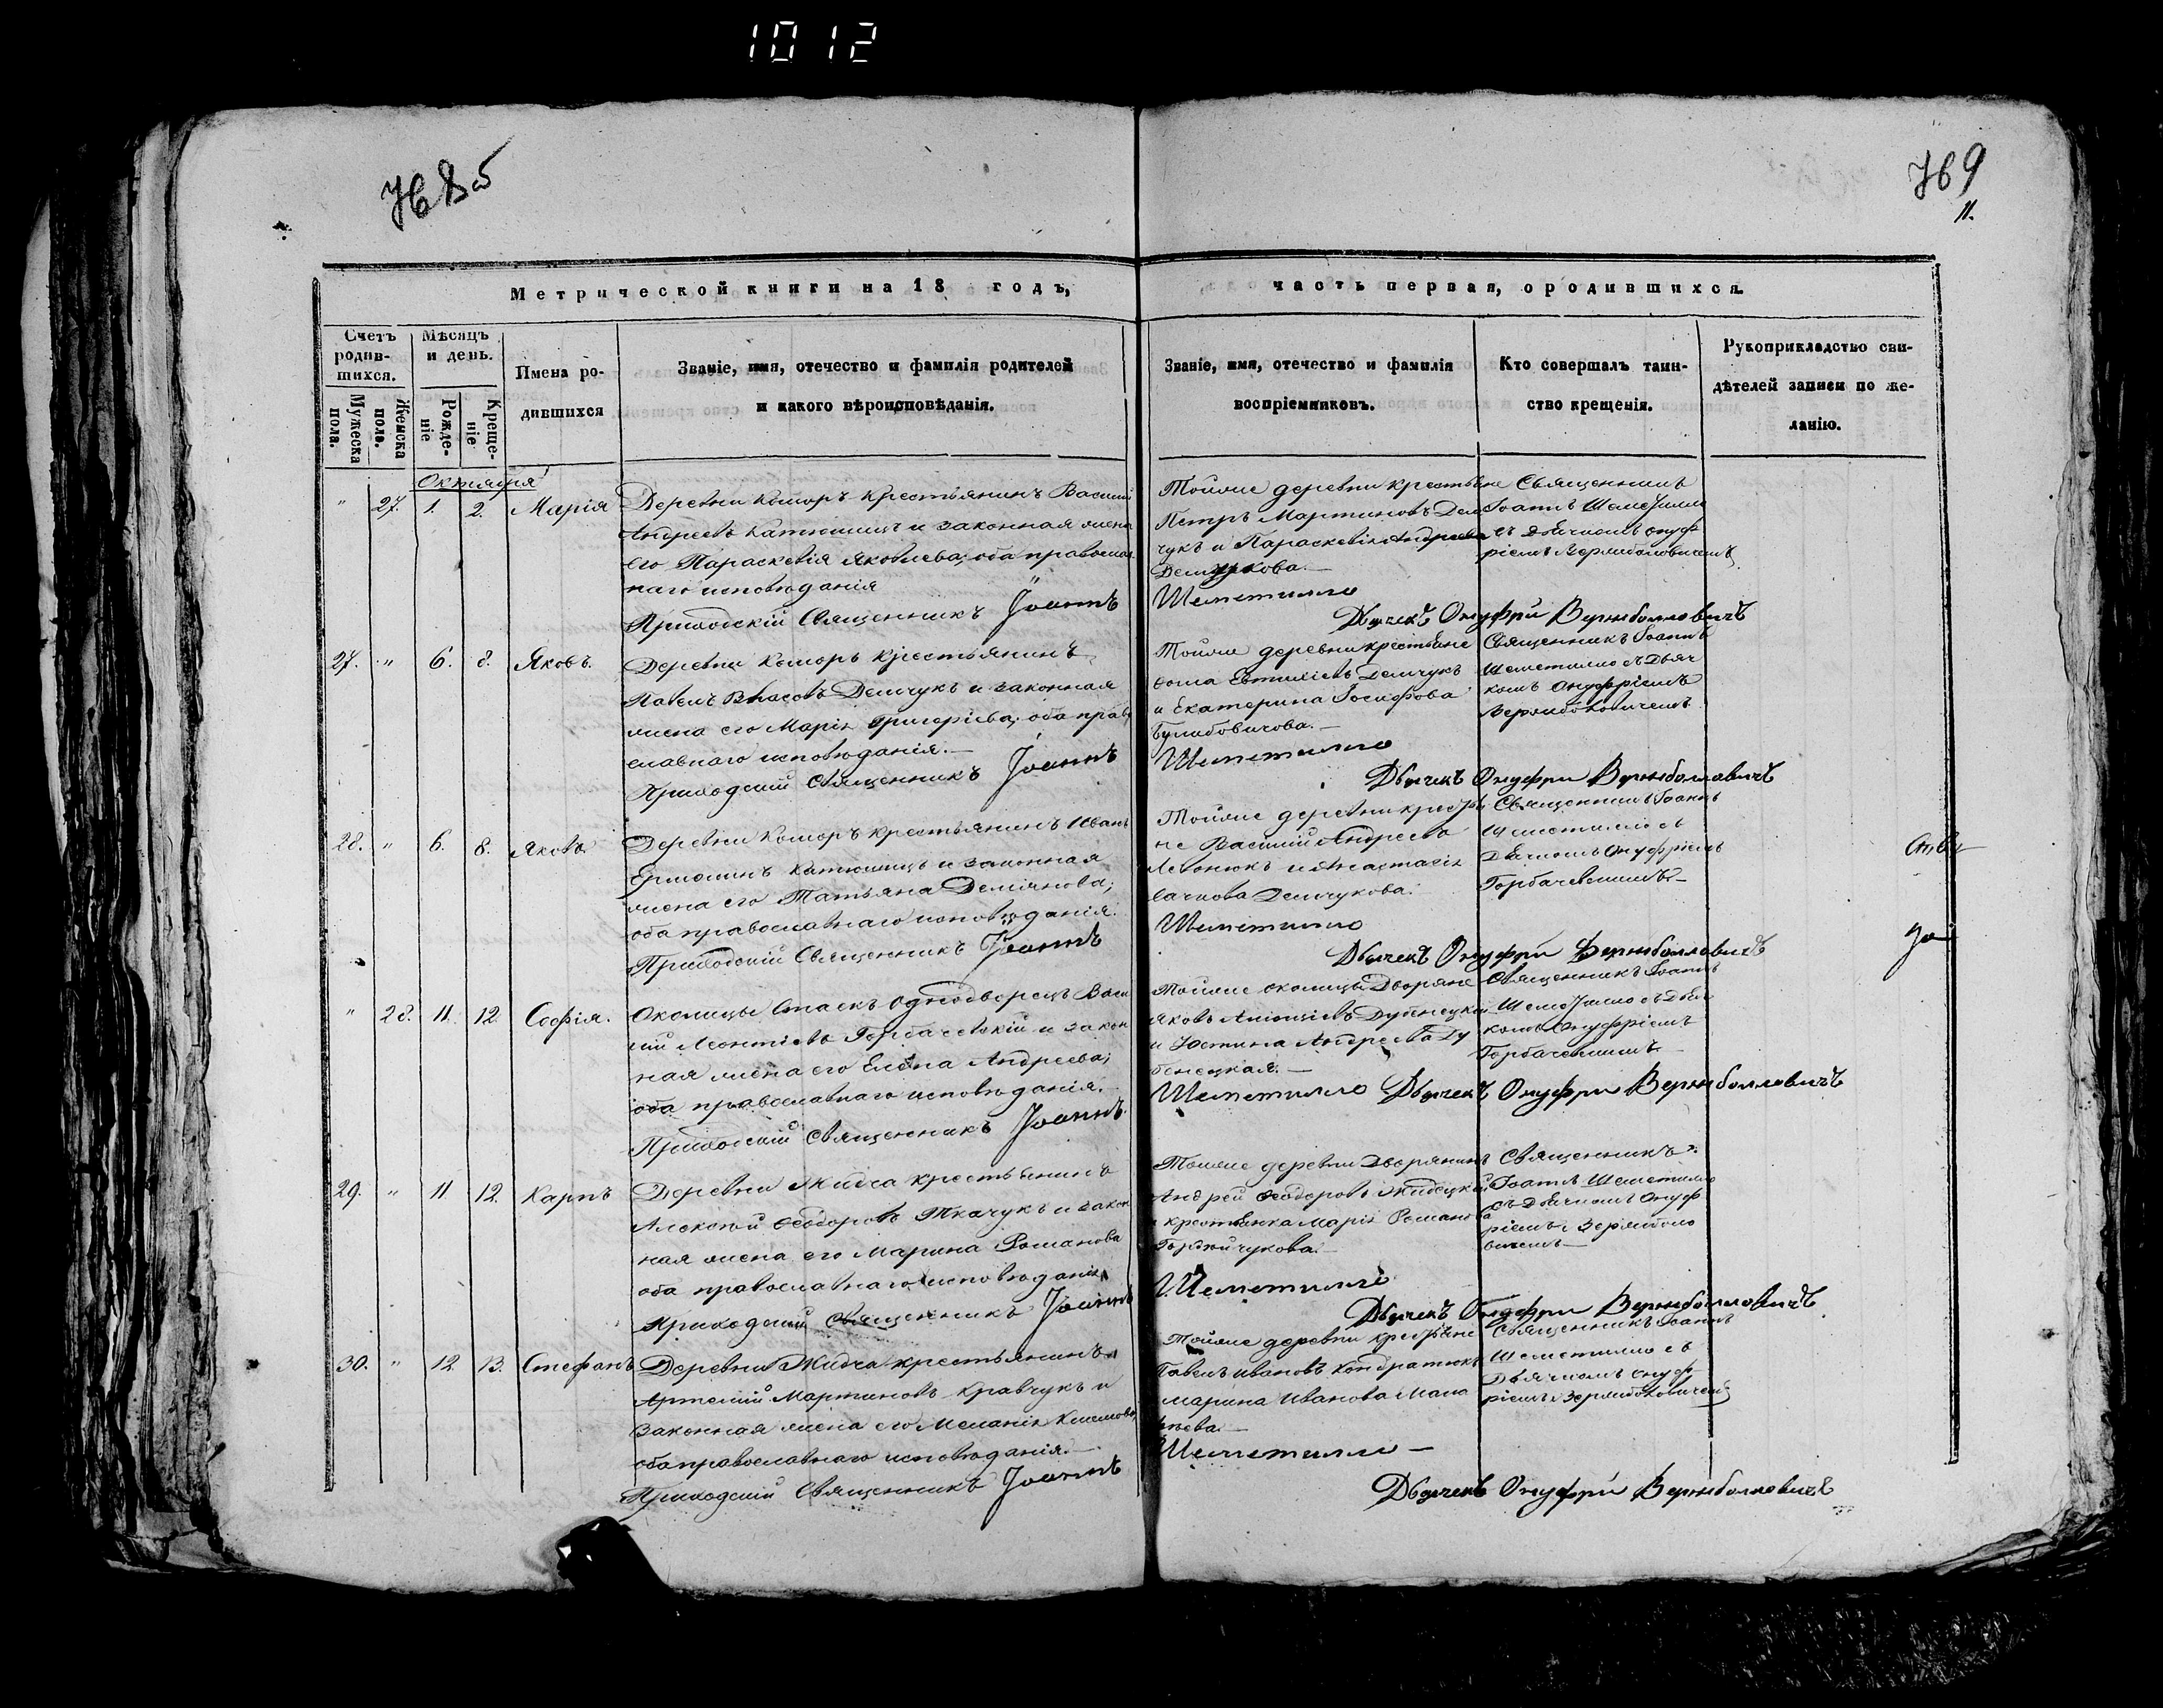 1012
769
11.
Метрической книги на 18 годъ,
часть первая, ородившихся.
Счетъ родив-
шихся.
Мужеска пола.
Женска пола.
Мѣсяцъ и день.
Рожде-
ніе
Креще-
ніе
Имена ро-
дившихся
Званіе, имя, отечество и фамилія родителей
и какого вѣроисповѣданія.
Званіе, имя, отечество и фамилія
воспріемниковъ.
Кто совершалъ таин-
ство крещенія.
Рукоприкладство сви-
дѣтелей записи по же-
ланію.
Октября
" 27. 1. 2. Марія
Деревни Коморъ крестьянинъ Василій
Андреевъ и законная жена
его Параскевія Яковлева; оба православ
наго исповѣданія
Приходскій Священникъ Іоаннъ
Тойже деревни крестьяне
Петръ Мартиновъ Дем
чукъ и Параскевія Андреева
Демчукова.
Шеметилло
Священникъ
Іоаннъ Шеметилло
съ Дьячкомъ Онуф
ріемъ
Дьячекъ Онуфри
27. " 6. 8. Яковъ.
Деревни Коморъ крестьянинъ
Павелъ Власовъ Демчукъ и законная
жена его Марія Григоріева; оба право
славнаго исповѣданія.
Приходскій Священникъ Іоаннъ
Тойже деревни крестьяне
Ѳома Евтихіевъ Демчукъ
и Екатерина Іосифова
Шеметилло
Священникъ Іоаннъ
Шеметилло съ Дьяч
комъ Онуфріемъ
Дьячекъ Онуфри
28. " 6. 8. Яковъ.
Деревни Коморъ крестьянинъ Иванъ
и законная
жена его Татьяна Деміянова;
оба православнаго исповѣданія.
Приходскій Священникъ Іоаннъ
Тойже деревни крестья
не Василій Андреевъ
Левонюкъ и Анастасія
Демчукова.
Шеметилло
Священникъ Іоаннъ
Шеметилло съ
Дьячкомъ Онуфріемъ
Горбачевскимъ
Дьячекъ Онуфри
" 28. 11. 12. Софія.
Околицы Спаскъ Однодворецъ Васи
лій Леонтіевъ Горбачевскій и закон
ная жена его Елена Андреева;
оба православнаго исповѣданія.
Приходскій Священникъ Іоаннъ
Тойже околицы Дворяне
Яковъ Дубенецкій
и Юстина Андреева Ду
бенецкая.
Шеметилло
Священникъ Іоаннъ
Шеметилло съ Дьяч
комъ Онуфріемъ
Горбачевскимъ
Дьячекъ Онуфри
29. " 11. 12. Карпъ
Деревни Жидча крестьянинъ
Алексѣй Ѳеодоровъ Ткачукъ и закон
ная жена его Марина Романова
оба православнаго исповѣданія
Приходскій Священникъ Іоаннъ
Тойже деревни Дворянинъ
Андрей Ѳеодоровъ Жидецкій
и крестьянка Марія Романова
Шеметилло
Священникъ
Іоаннъ Шеметилло
съ Дьячкомъ Онуф
ріемъ
Дьячекъ Онуфри
30. " 12. 13. Стефанъ
Деревни Жидча крестьянинъ
Артемій Мартиновъ Кравчукъ и
Законная жена его Меланія
оба православнаго исповѣданія.
Приходскій Священникъ Іоаннъ
Тойже деревни крестьяне
Павелъ Ивановъ Кондратюкъ
Марина Иванова
Шеметилло
Священникъ Іоаннъ
Шеметилло съ
Дьячкомъ Онуф
ріемъ
Дьячекъ Онуфри